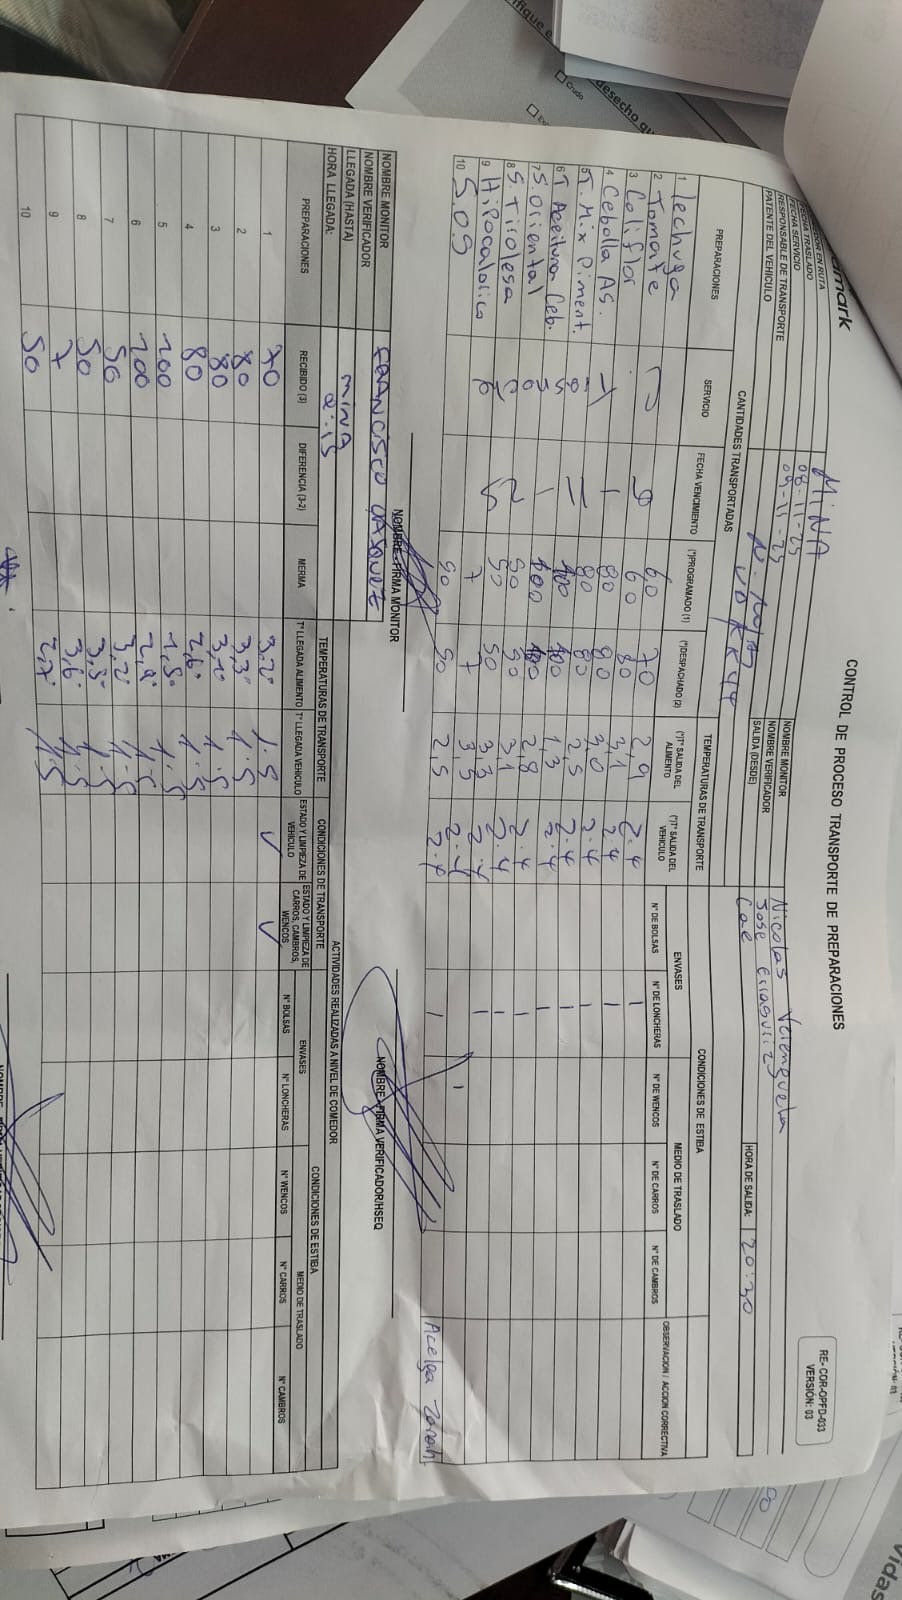 CONTROL DE PROCESO TRANSPORTE DE PREPARACIONES
RE- COR-OPFD-033
VERSIÓN: 03
MINA
FECHA TRASLADO 08-11-25
FECHA SERVICIO 09-11-25
RESPONSABLE DE TRANSPORTE
PATENTE DEL VEHICULO
NOMBRE MONITOR Nicolas
NOMBRE VERIFICADOR Jose
SALIDA (DESDE) Cae
HORA DE SALIDA: 20:30
CANTIDADES TRANSPORTADAS
TEMPERATURAS DE TRANSPORTE
CONDICIONES DE ESTIBA
ENVASES
MEDIO DE TRASLADO
PREPARACIONES SERVICIO FECHA VENCIMIENTO (*)PROGRAMADO (1) (*)DESPACHADO (2) (*)T° SALIDA DEL ALIMENTO (*)T° SALIDA DEL VEHICULO N° DE BOLSAS N° DE LONCHERAS N° DE WENCOS N° DE CARROS N° DE CAMBROS OBSERVACION / ACCION CORRECTIVA
1 lechuga 60 70 2,9 2.4 1
2 Tomate 60 80 3,1 2.4 1
3 Coliflor 80 80 3,0 2.4 1
4 Cebolla AS. 80 80 2,5 2.4 1
5 T. Mix Piment. 100 100 1,3 2.4 1
6 T Aceituna Ceb. 100 100 2,8 2.4 1
7 S. Oriental 50 50 3,1 2.4
8 S. Tirolesa 50 50 3,3 2.4 1
9 HiPocalorico 7 7 3,5 2.4 1
10 S.O.S 50 50 2,5 2.4 1 Acelga
NOMBRE - FIRMA MONITOR
NOMBRE - FIRMA VERIFICADOR/HSEQ
NOMBRE MONITOR FRANCISCO VASQUEZ
NOMBRE VERIFICADOR
LLEGADA (HASTA) minA
HORA LLEGADA:
ACTIVIDADES REALIZADAS A NIVEL DE COMEDOR
TEMPERATURAS DE TRANSPORTE
CONDICIONES DE TRANSPORTE
CONDICIONES DE ESTIBA
ENVASES
MEDIO DE TRASLADO
PREPARACIONES RECIBIDO (3) DIFERENCIA (3-2) MERMA T° LLEGADA ALIMENTO T° LLEGADA VEHICULO ESTADO Y LIMPIEZA DE VEHICULO ESTADO Y LIMPIEZA DE CARROS, CAMBROS, WENCOS N° BOLSAS N° LONCHERAS N° WENCOS N° CARROS N° CAMBROS
1 70 3,2° 1.5 ✓ ✓
2 80 3,3° 1.5
3 80 3,1° 1.5
4 80 2,6° 1.5
5 100 1,5° 1.5
6 100 2,9° 1.5
7 50 3,2° 1.5
8 50 3,3° 1.5
9 7 3,6° 1.5
10 50 2,7° 1.5